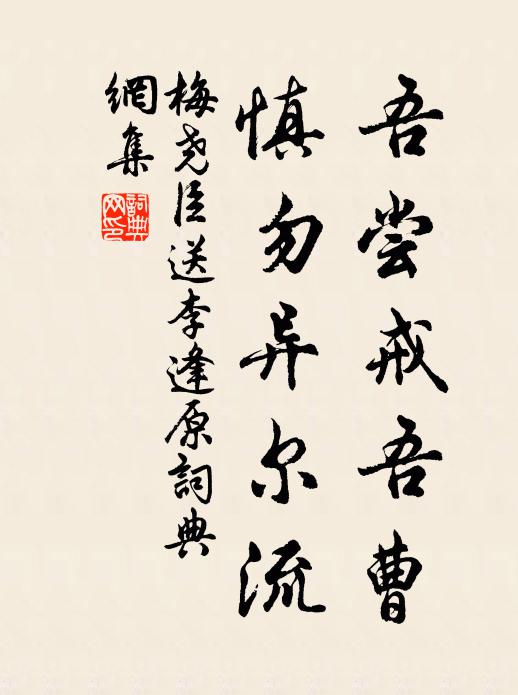 吾尝戒吾曹
慎勿异尔流
梅尧臣送李逢原詞典
網集
詞典
网印